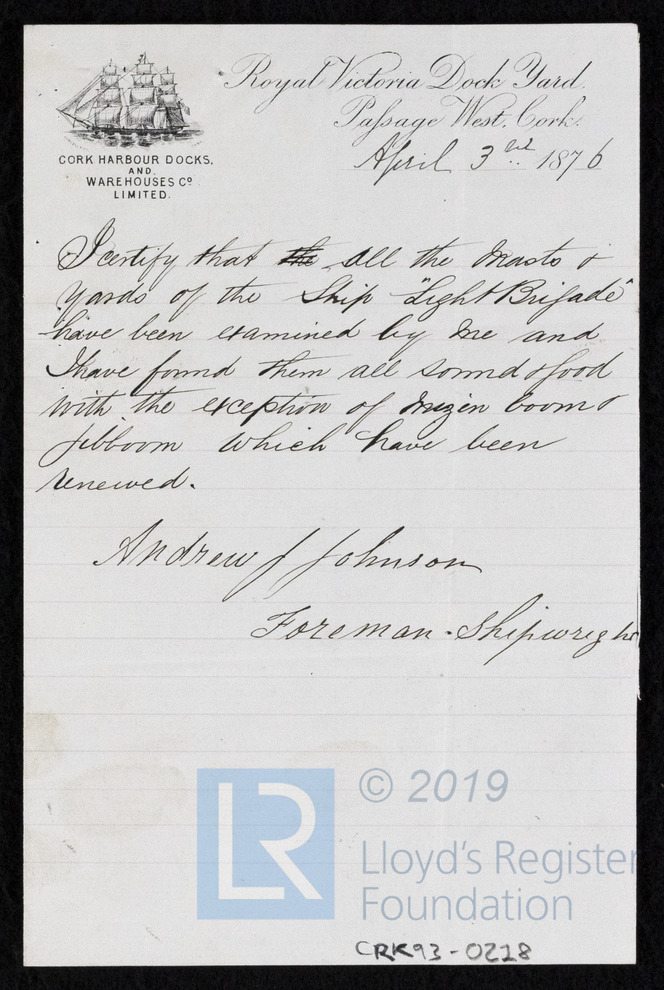 Royal Victoria Dock Yard.
Passage West. Cork.
April 3rd 1876
CORK HARBOUR DOCKS,
AND
WAREHOUSES Co
LIMITED.
I certify that the all the Masts &
Yards of the Ship "Light Brigade"
have been examined by me and
I have found them all sound & good
with the exception of Mizen boom &
Jibboom which have been
renewed.
Andrew J Johnson
Foreman - Shipwright
© 2019
LR
Lloyd's Register
Foundation
CRK93-0218